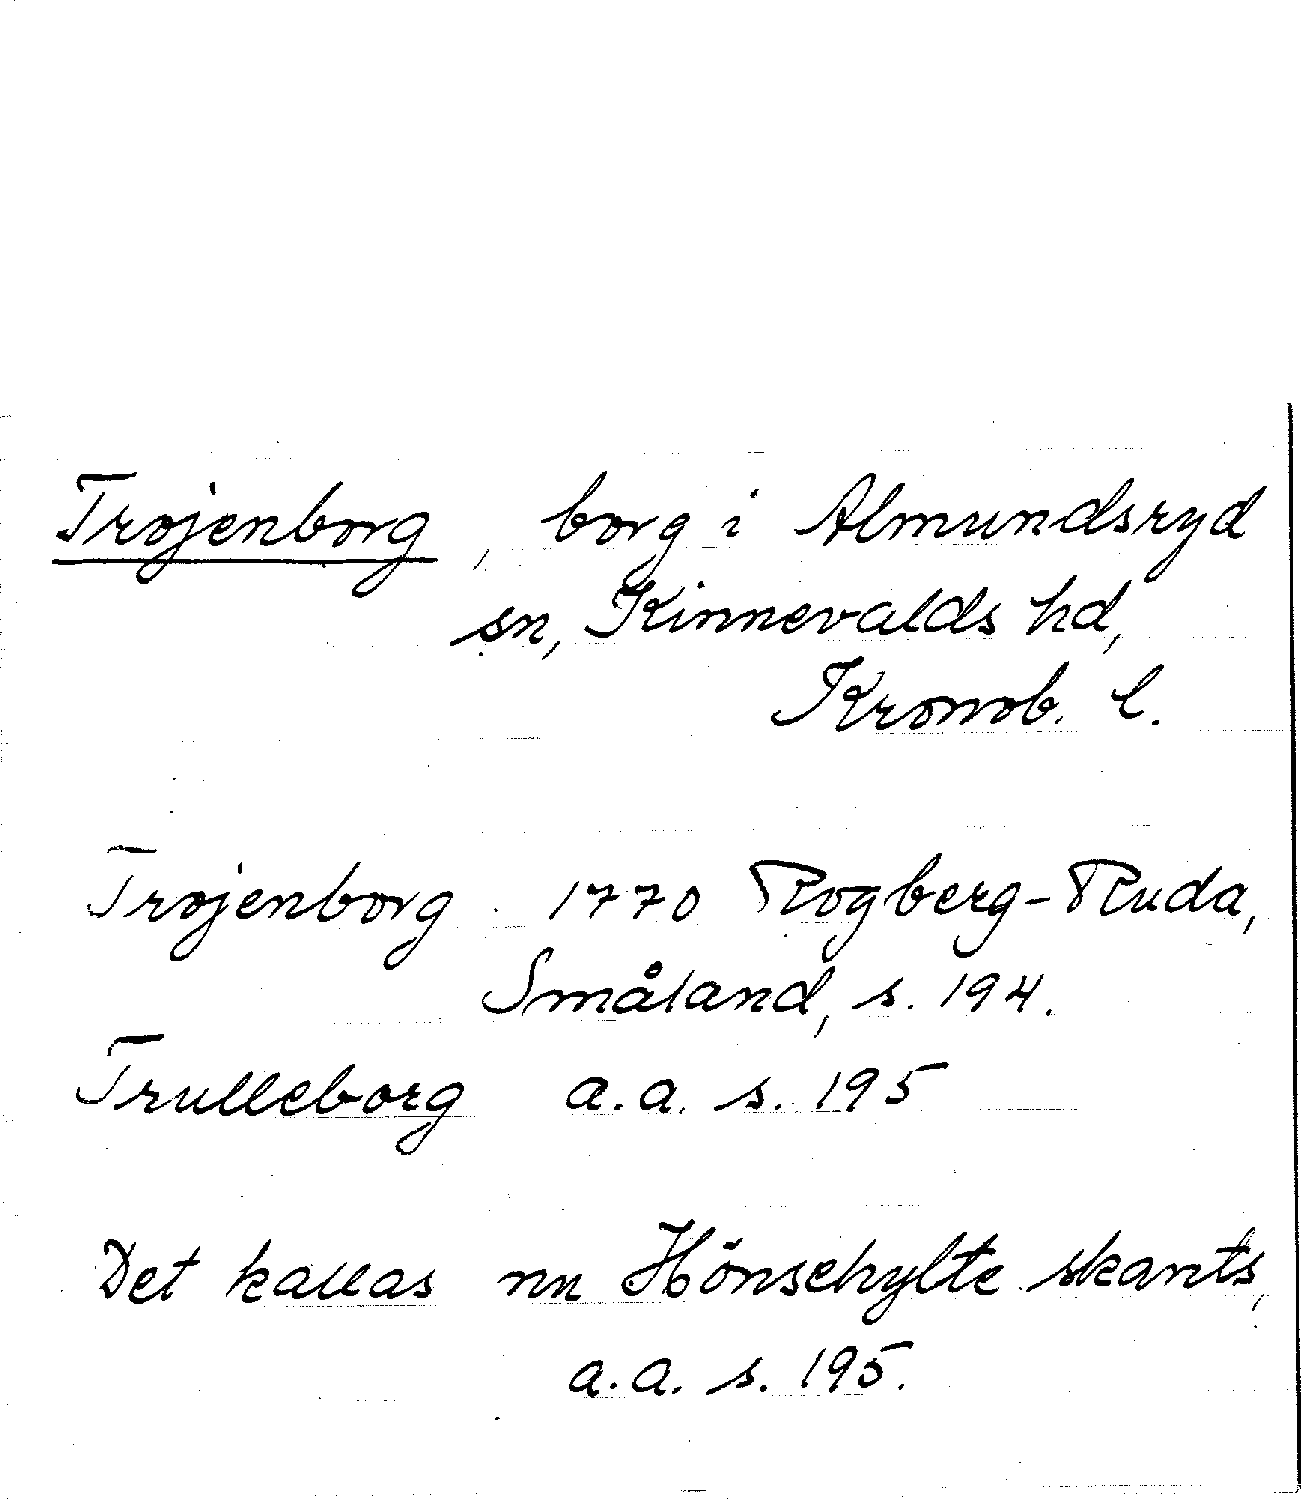 Trojenborg, borg i Almundsryd
sn, Kinnevalds hd,
Kronob. l.
Trojenborg. 1770 Rogberg-Ruda,
Småland, s. 194.
Trulleborg a.a. s. 195
Det kallas nu Hönsehylte skants,
a.a. s. 195.